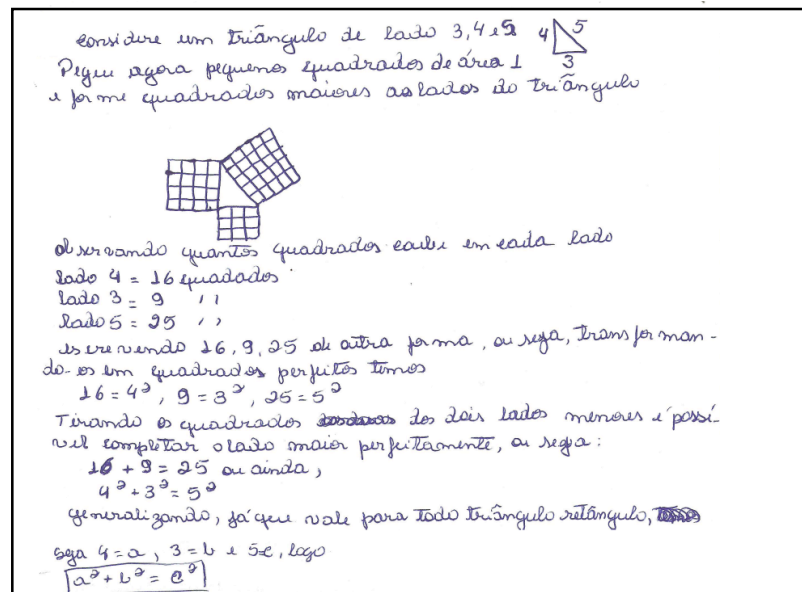 considere um triângulo de lado 3, 4 e 5 4 5
3
Pegue agora pequenos quadrados de área 1
e forme quadrados maiores aos lados do triângulo
observando quantos quadrados cabe em cada lado
lado 4 = 16 quadados
lado 3 = 9 ' '
lado 5 = 25 ' '
escrevendo 16, 9, 25 de outra forma, ou seja, transforman-
do-os em quadrados perfeitos temos
16 = 4², 9 = 3², 25 = 5²
Tirando os quadrados dos dois lados menores é possí-
vel completar o lado maior perfeitamente, ou seja:
16 + 9 = 25 ou ainda,
4² + 3² = 5²
generalizando, já que vale para todo triângulo retângulo,
seja 4 = a, 3 = b e 5 = c, logo
a² + b² = c²